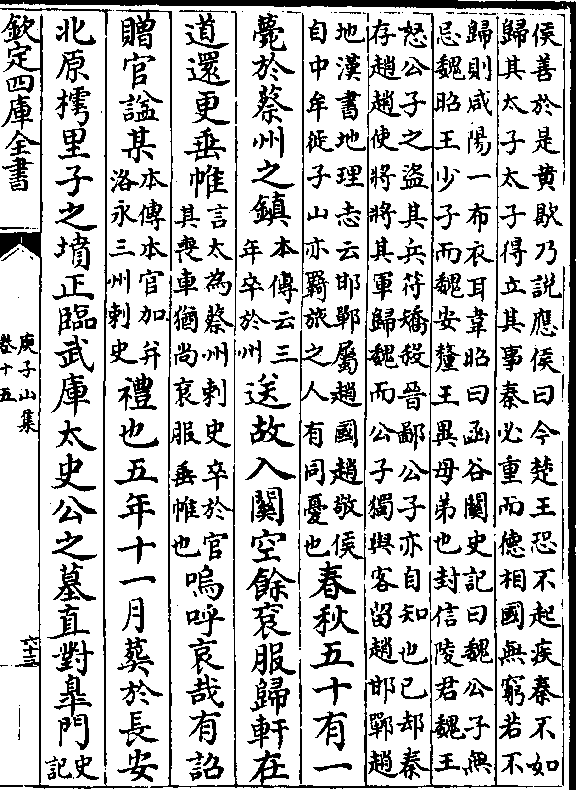 侯善於是黄歇乃說應侯曰今楚王恐不起疾秦不如
歸其太子太子得立其事秦必重而德相國無窮若不
歸則咸陽一布衣耳韋昭曰函谷關史記曰魏公子無
忌魏昭王少子而魏安釐王異母弟也封信陵君魏王
怒公子之盜其兵符矯殺晉鄙公子亦自知也已却秦
存趙趙使將將其軍歸魏而公子獨與客留趙邯鄲趙
地漢書地理志云邯鄲屬趙國趙敬侯
自中牟徙子山亦羇旅之人有同憂也
春秋五十有一
薨於蔡州之鎮
本傳云三
年卒於州
送故入關空餘衮服歸軒在
道還更垂帷
言太為蔡州刺史卒於官
其喪車猶尚衮服垂帷也
嗚呼哀哉有詔
贈官諡某
本傳本官加并
洛永三州刺史
禮也五年十一月葬於長安
北原樗里子之墳正臨武庫太史公之墓直對臯門
史
記
欽定四庫全書
庾子山集
卷十五
六十三